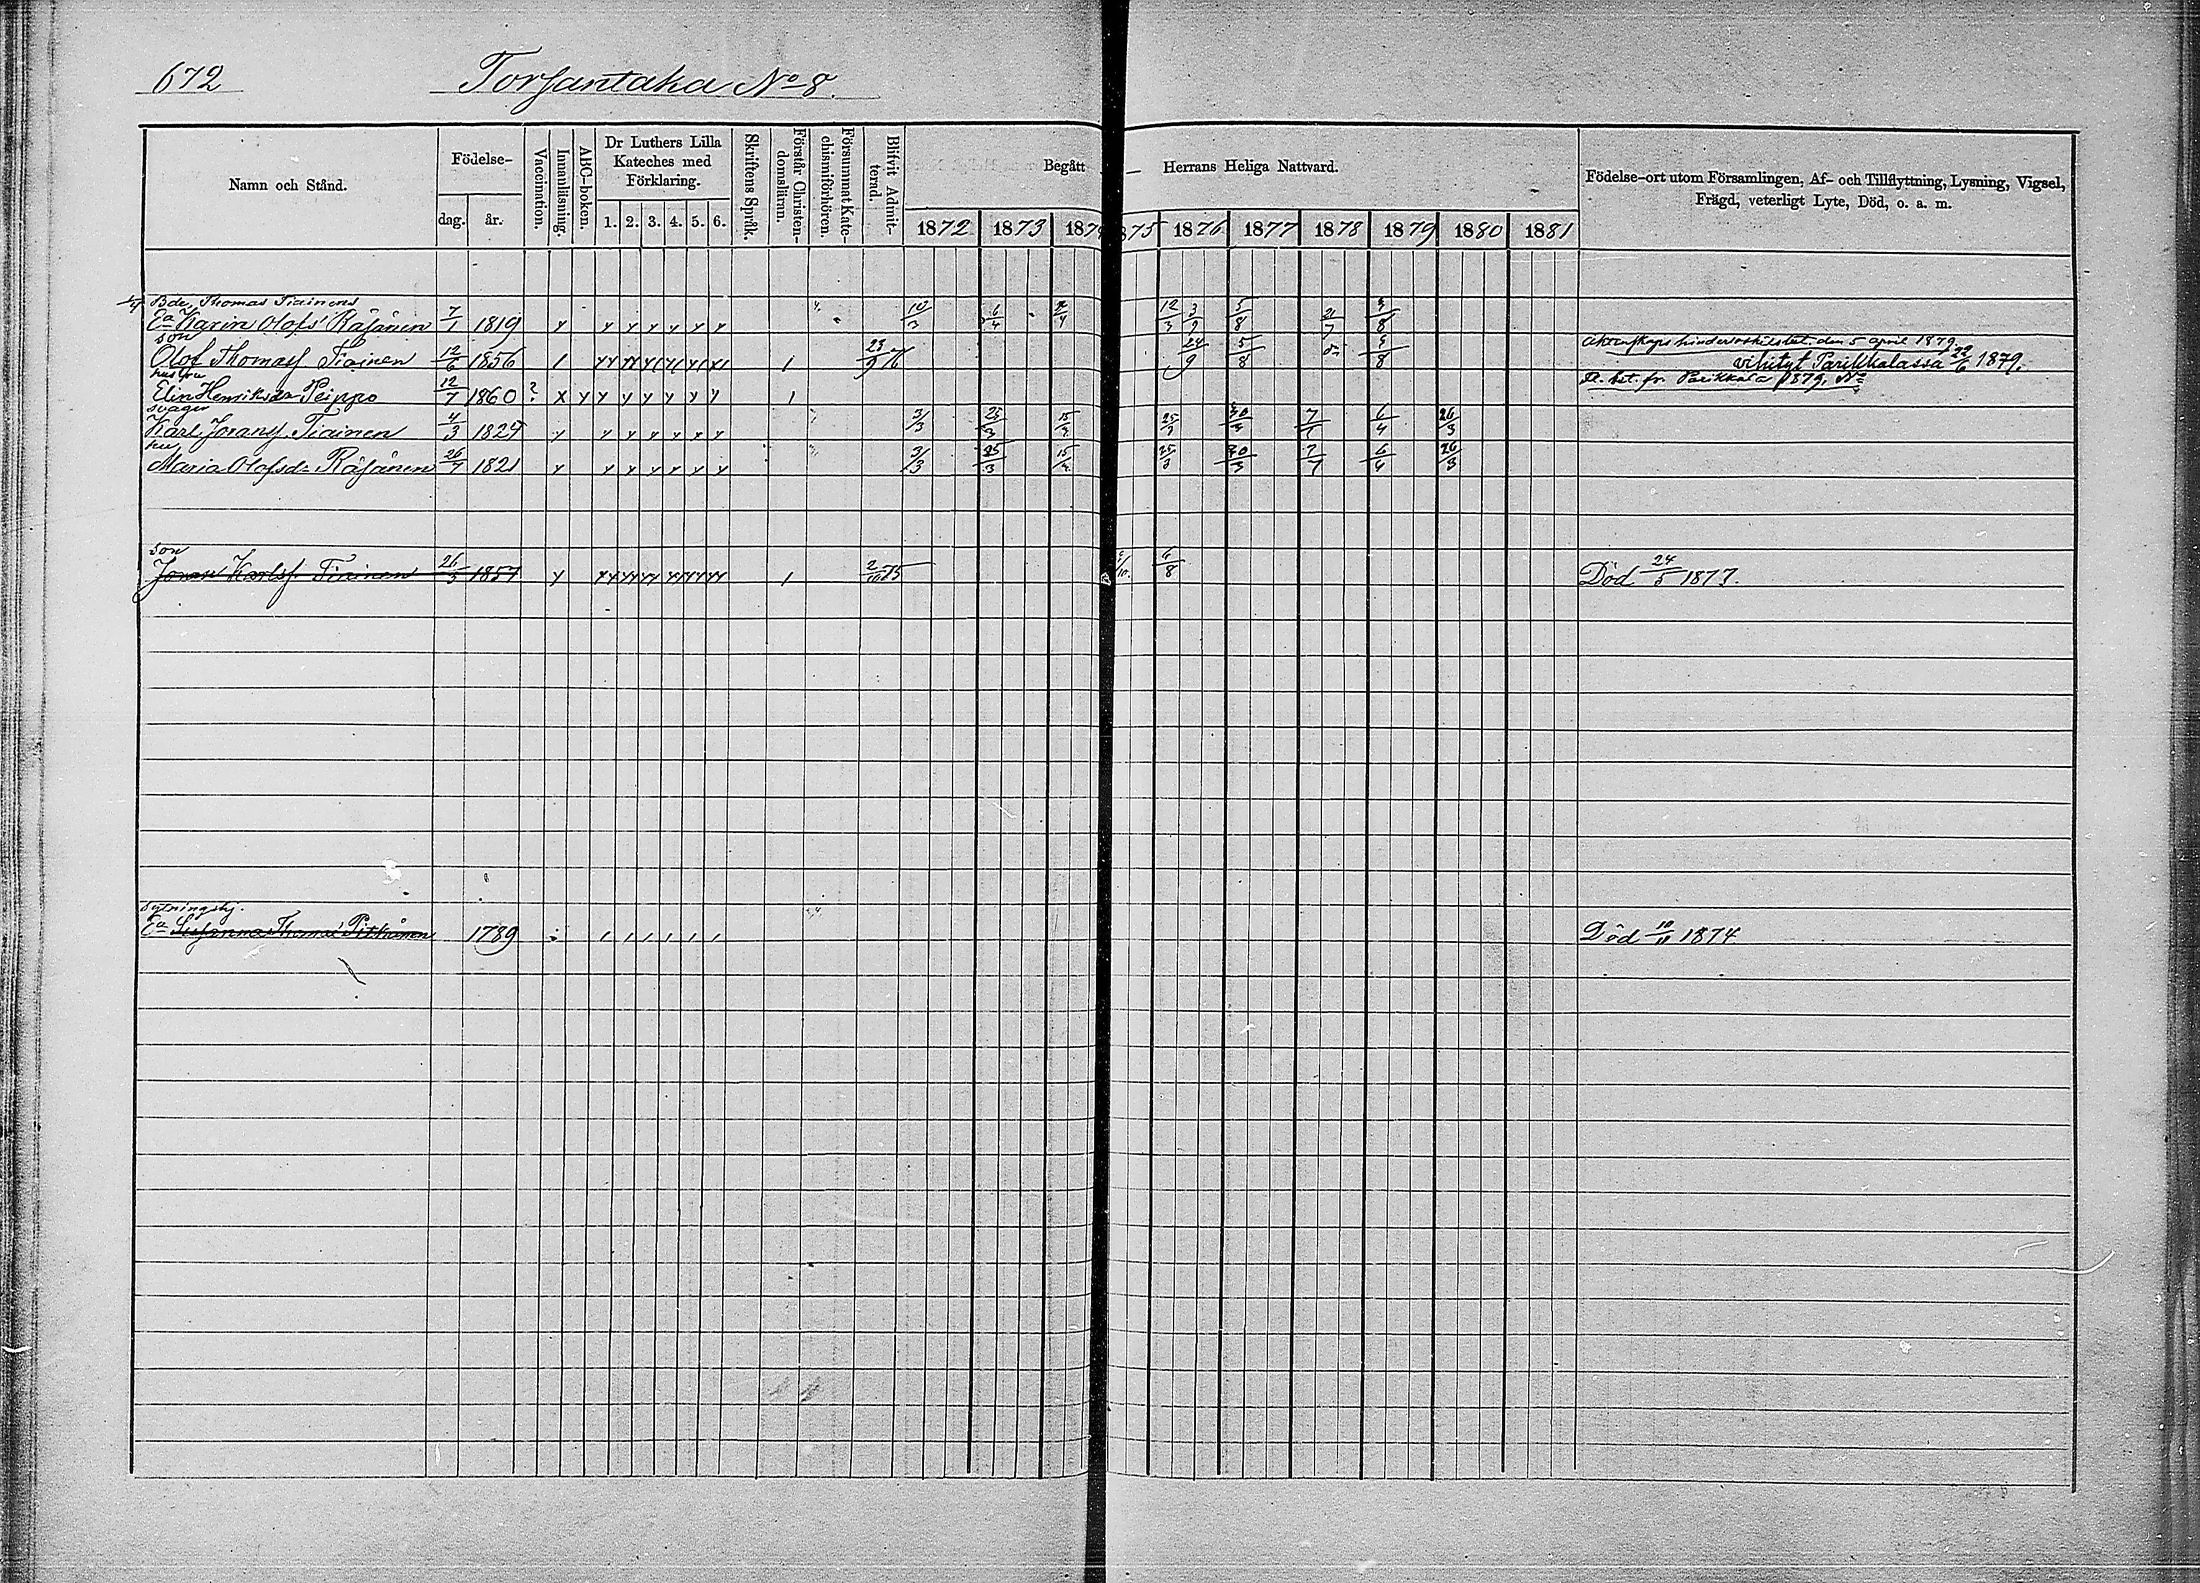 672 Torsantaka No 8.
Namn och Stånd.
Födelse-
dag. år.
Vaccination.
Innanläsning.
ABC-boken.
Dr Luthers Lilla
Kateches med
Förklaring.
1. 2. 3. 4. 5. 6.
Skriftens Språk.
Förstår Christen-
domsläran.
Försummat Kate-
chismiförhören.
Blifvit Admit-
terad.
Begått Herrans Heliga Nattvard.
1872 1873 187 875 1876 1877 1878 1879 1880 1881
Födelse-ort utom Församlingen, Af- och Tillflyttning, Lysning, Vigsel,
Frägd, veterligt Lyte, Död, o. a. m.
Bde, Thomas Tiainens
Ea Karin Olofs' Räsänen 7/1 1819 10/3 6/4 12/3 3/9 5/8 8
son
Olof Thomass Tiainen 12/6 1856 23/9 76 24/9 5/8 8 Äktenskaps hinderslöshetsbet. den 5 april 1879
vihityt Parikkalassa 22/6 1879.
hustru
Elin Henriksdr Peippo 12/7 1860 ? Fl. bet. fr. Parikkala 1879. No
svåger
Karl Joranss. Tiainen 4/3 1824 3/3 25/3 15/ 25/3 30/3 7/7 6/4 26/3
hu
Maria Olofsdr Räsänen 26/7 1821 3/3 25/3 15/ 25/3 30/3 7/7 6/4 26/3
son
Joran Karlss. Tiainen 26/3 1857 2/10 75 /10. 6/8 Död 24/5 1877.
sytningshj.
Ea Susanna Thoms' Pitkänen 1789 Död 10/11 1874